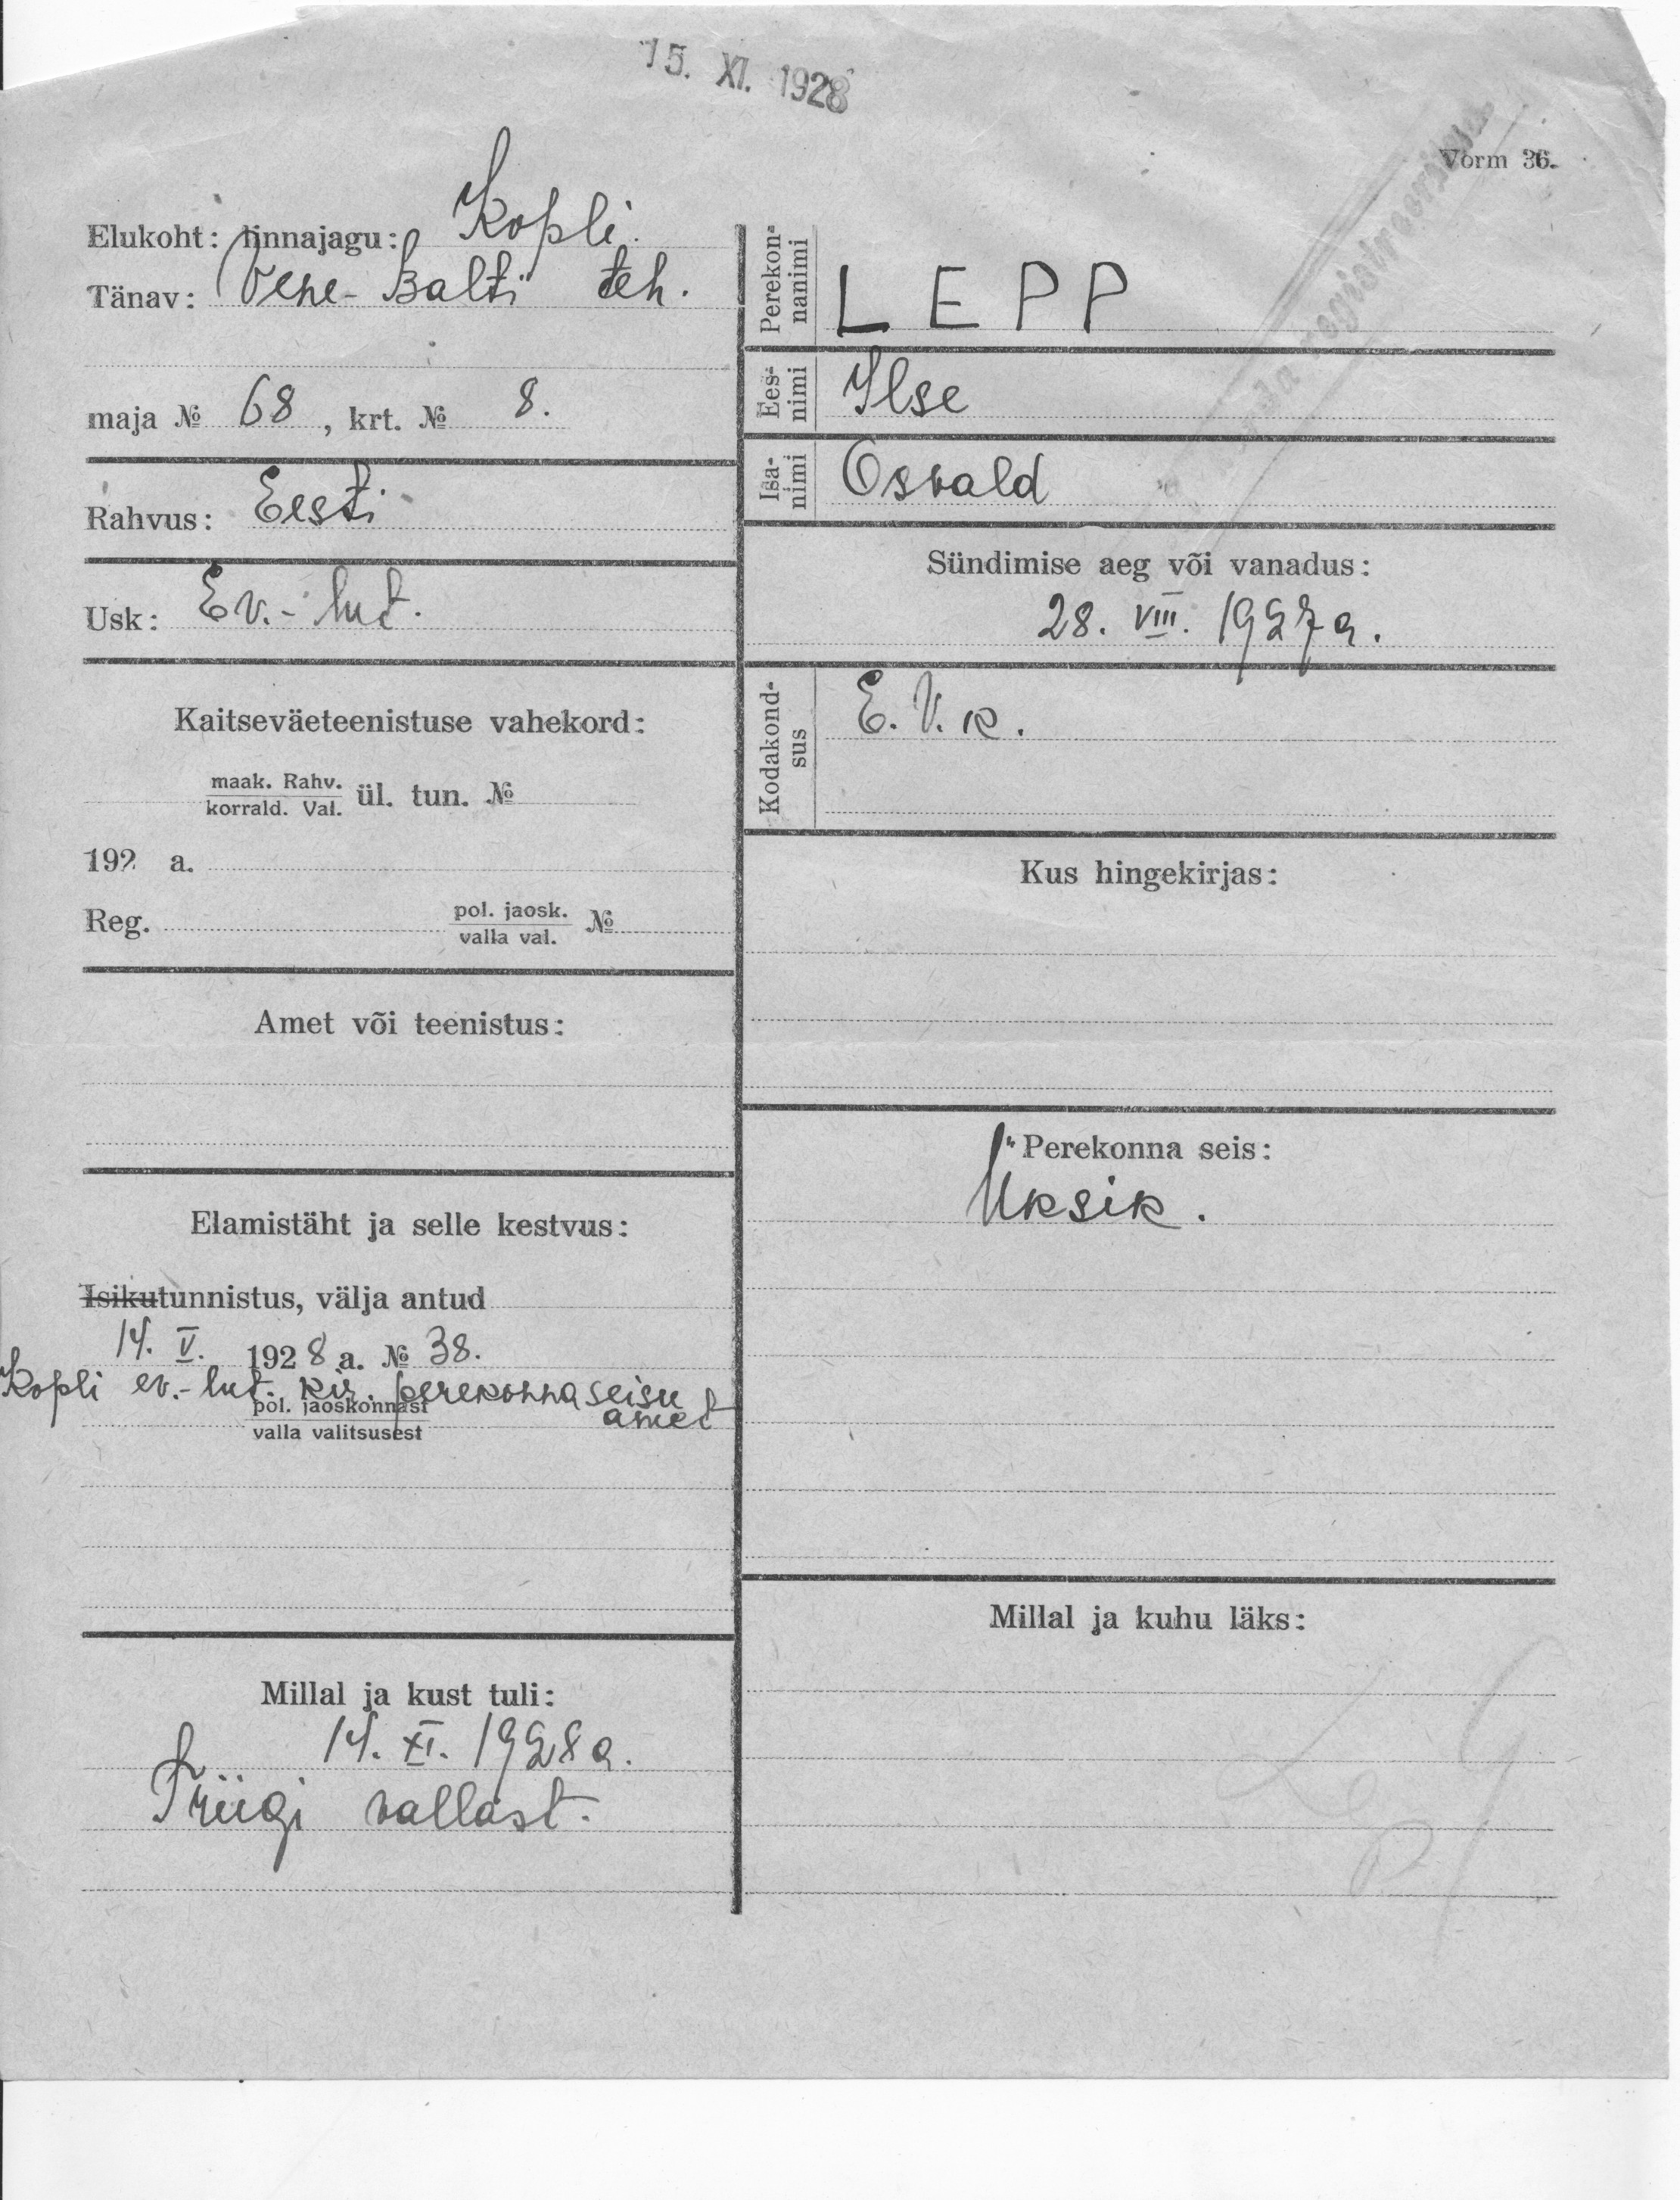 15. XI. 1928
Vorm 36.
Elukoht: linnajagu: Kopli.
Tänav: Vene-Balti teh.
maja № 68, krt. № 8.
Rahvus: Eesti
Usk: Ev.-lut.
Kaitseväeteenistuse vahekord:
maak. Rahv.
korrald. Val. ül. tun. №
192 a.
Reg. pol. jaosk. №
valla val.
Amet või teenistus:
Elamistäht ja selle kestvus:
Isikutunnistus, välja antud
14. V. 1928 a. № 38.
Kopli ev.-lut. kir. perekonnaseisu
amet
pol. jaoskonnast
valla valitsusest
Millal ja kust tuli:
14. XI. 1928 a.
Triigi vallast.
Perekonnanimi LEPP
Ees-nimi Ilse
Isa-nimi Osvald
Sündimise aeg või vanadus:
28. VIII. 1927 a.
Kodakond-sus E. V. k.
Kus hingekirjas:
Perekonna seis:
Üksik.
Millal ja kuhu läks:
registreeritud